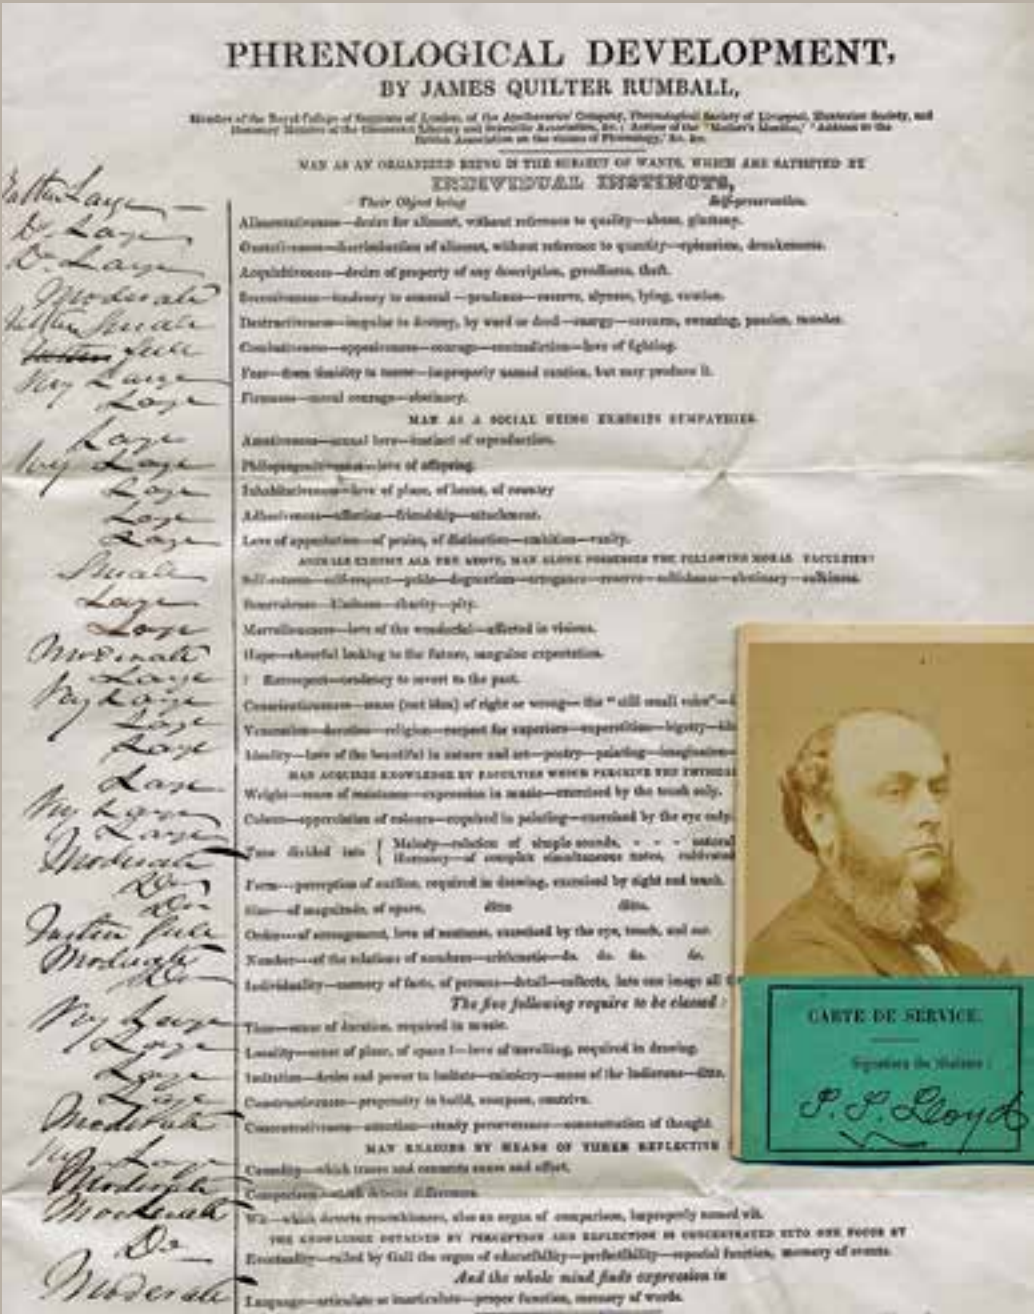 PHRENOLOGICAL DEVELOPMENT,
BY JAMES QUILTER RUMBALL,
Member of the Royal College of Surgeons of London, of the Apothecaries' Company, Phrenological Society of Liverpool, Society, and
Honorary Member of the Literary and Scientific Association, &c.; Author of the 'Mother's ' 'Address to the
British Association on the of Phrenology,' &c. &c.
MAN AS AN ORGANIZED BEING IS THE SUBJECT OF WANTS, WHICH ARE SATISFIED BY
INDIVIDUAL INSTINCTS,
Their Object being Self-preservation.
Rather Large Alimentiveness—desire for aliment, without reference to quality—abuse, gluttony.
Do. Large Gustativeness—discrimination of aliment, without reference to quantity—epicurism, drunkenness.
Do. Large Acquisitiveness—desire of property of any description, greediness, theft.
Moderate Secretiveness—tendency to conceal—prudence—reserve, slyness, lying, caution.
Rather Small Destructiveness—impulse to destroy, by word or deed—energy—sarcasm, swearing, passion, murder.
Full Combativeness—oppositiveness—courage—contradiction—love of fighting.
Very Large Fear—from timidity to terror—improperly named caution, but may produce it.
Large Firmness—moral courage—obstinacy.
MAN AS A SOCIAL BEING EXHIBITS SYMPATHIES.
Large Amativeness—sexual love—instinct of reproduction.
Very Large Philoprogenitiveness—love of offspring.
Large Inhabitiveness—love of place, of home, of country
Large Adhesiveness—affection—friendship—attachment.
Large Love of approbation—of praise, of distinction—ambition—vanity.
ANIMALS EXHIBIT ALL THE ABOVE, MAN ALONE POSSESSES THE FOLLOWING MORAL FACULTIES:
Small Self-esteem—self-respect—pride—dogmatism—arrogance—reserve—selfishness—obstinacy—sulkiness.
Large Benevolence—kindness—charity—pity.
Large Marvellousness—love of the wonderful—affected in visions.
Moderate Hope—cheerful looking to the future, sanguine expectation.
Large ? Retrospect—tendency to revert to the past.
Very Large Conscientiousness—sense (not idea) of right or wrong—the "still small voice"—
Large Veneration—devotion—religion—respect for superiors—superstition—bigotry—
Large Ideality—love of the beautiful in nature and art—poetry—painting—imagination—
MAN ACQUIRES KNOWLEDGE BY FACULTIES WHICH PERCEIVE THE PHYSICAL
Large Weight—sense of resistance—expression in music—exercised by the touch only.
Very Large Colour—appreciation of colours—required in painting—exercised by the eye only.
Large Tune divided into { Melody—relation of simple sounds, - - - natural
Moderate Harmony—of complex simultaneous notes, cultivated
Do Form—perception of outline, required in drawing, exercised by sight and touch.
Do Size—of magnitude, of space, ditto ditto.
Rather Full Order—of arrangement, love of neatness, exercised by the eye, touch, and ear.
Moderate Number—of the relations of numbers—arithmetic—do. do. do. do.
Do Individuality—memory of facts, of persons—detail—collects, into one image all
The five following require to be classed:
Very Large Time—sense of duration, required in music.
Large Locality—sense of place, of space—love of travelling, required in drawing.
Large Imitation—desire and power to imitate—mimicry—sense of the ludicrous—ditto.
Large Constructiveness—propensity to build, compose, contrive.
Moderate Concentrativeness—attention—steady perseverance—concentration of thought.
MAN REASONS BY MEANS OF THREE REFLECTIVE
Very Large Causality—which traces and connects cause and effect.
Moderate Comparison—which detects differences.
Moderate Wit—which detects resemblances, also an organ of comparison, improperly named wit.
THE KNOWLEDGE OBTAINED BY PERCEPTION AND REFLECTION IS CONCENTRATED INTO ONE FOCUS BY
Do Eventuality—called by Gall the organ of educatibility—perfectibility—especial function, memory of events.
And the whole mind finds expression in
Moderate Language—articulate or inarticulate—proper function, memory of words.
CARTE DE SERVICE.
Signature du titulaire :
S. S. Lloyd